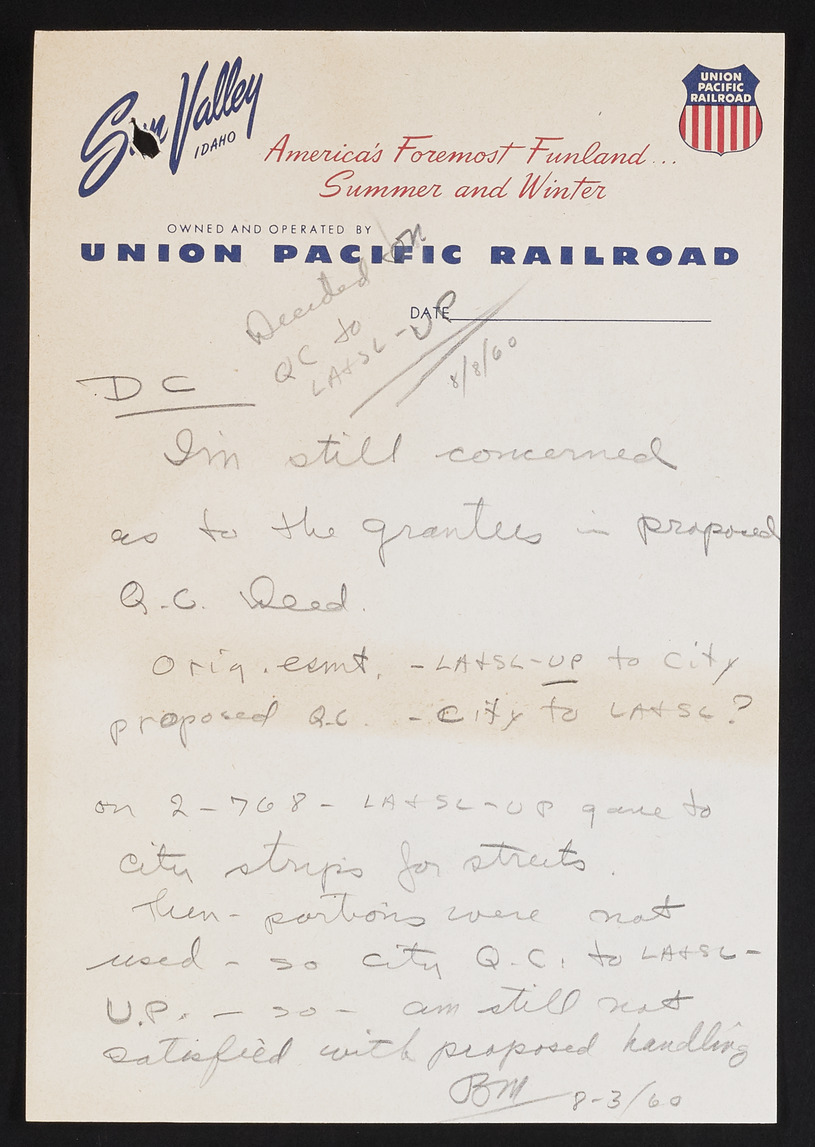 Sun Valley
IDAHO
UNION
PACIFIC
RAILROAD
America's Foremost Funland...
Summer and Winter
OWNED AND OPERATED BY
UNION PACIFIC RAILROAD
DATE
Decided on
QC to
LA+SL-UP
8/8/60
DC
I'm still concerned
as to the grantees in proposed
Q.C. Deed.
Orig. esmt. - LA+SL-UP to City
proposed Q.C. - City to LA+SL?
on 2-768- LA+SL-UP gave to
city strips for streets.
Then - portions were not
used - so city Q.C. to LA+SL-
U.P. - so - am still not
satisfied with proposed handling
BM 8-3/60